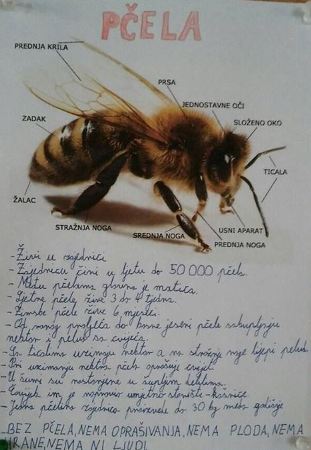 PČELA
PREDNJA KRILA
PRSA
JEDNOSTAVNE OČI
SLOŽENO OKO
ZADAK
TICALA
ŽALAC
STRAŽNJA NOGA
SREDNJA NOGA
USNI APARAT
PREDNJA NOGA
- Živi u zajednici
- Zajednicu čini u ljetu do 50 000 pčela.
- Među pčelama glavna je matica.
- Ljetne pčele žive 3 do 4 tjedna.
- Zimske pčele žive 6 mjeseci.
- Od ranog proljeća do kasne jeseni pčele sakupljaju
nektar i pelud sa cvijeća.
- Sa ticalima uzimaju nektar a na stražnje noge lijepi pelud.
- Pri uzimanju nektra pčele oprašuju cvijet.
- U šumi su nastanjene u šupljim deblima.
- Čovjek im je napravio umjetno stanište - košnice.
- Jedna pčelinja zajednica proizvede do 30 kg meda godišnje.
- BEZ PČELA, NEMA OPRAŠIVANJA, NEMA PLODA, NEMA
HRANE, NEMA NI LJUDI